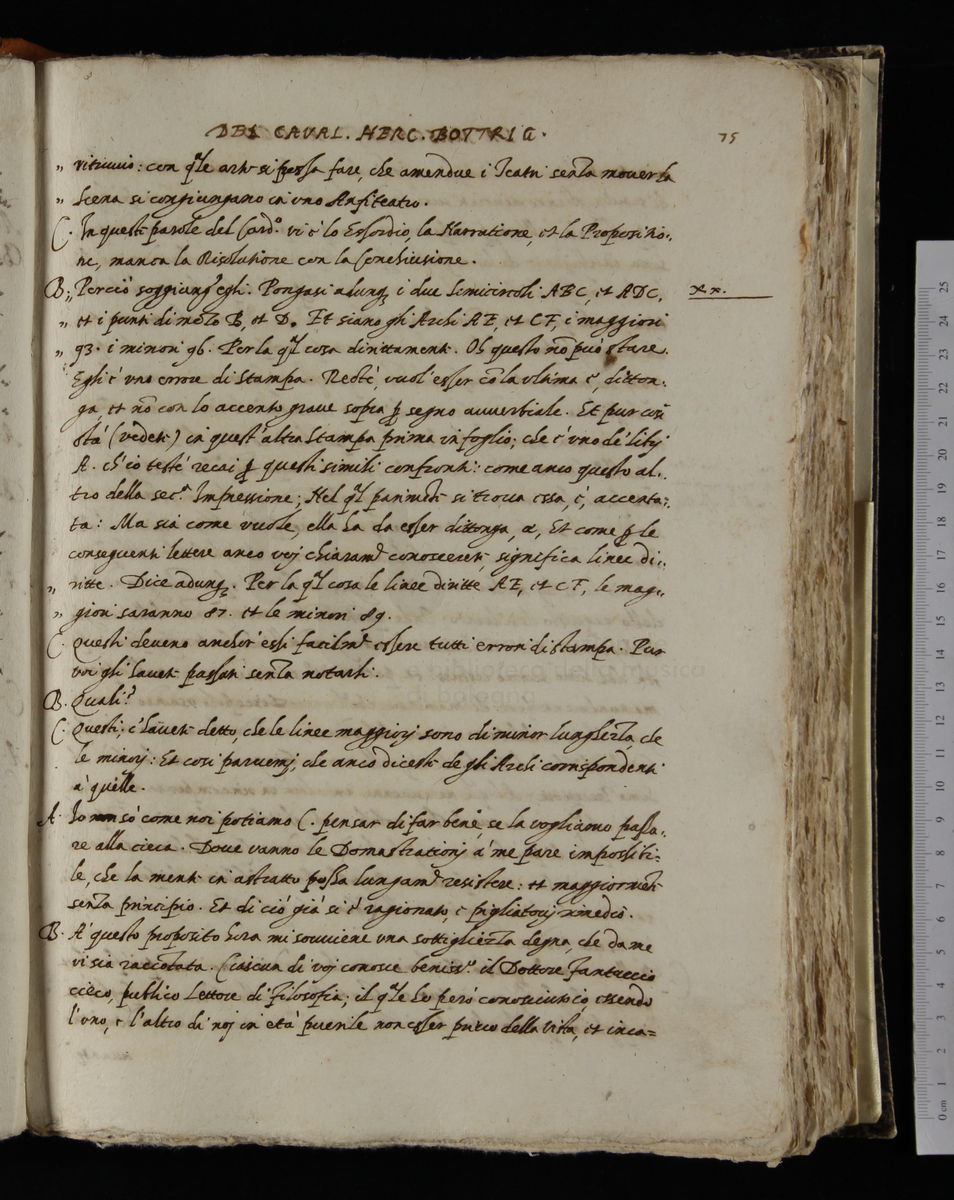 DEL CAVAL. HERC. BOTTRIG. 75
„ vitruuio: con qle arte si possa fare, che amendue i Teatri senza mouer la
„ scena si congiungano in uno Anfiteatro.
C. In queste parole del Card.º vi è lo Essordio, la Narratione, et la Propositio:,
ne, manca la Risolutione con la Conchiusione.
B; Perciò soggiung' egli. Pongasi adunq; i due Semicircoli ABC, et ADC,
„ et i punti di mezo B, et D. Et siano gli Archi AE, et CF, i maggiori
„ 93. i minori 96. Per la ql cosa dirittamente. Oh questo nõ può stare.
Egli è uno errore di Stampa. Rectè, vuol' esser cõ la ultima è, ditton:,
ga, et nõ con lo accento graue sopra p segno auuerbiale. Et pur così
stà (vedete) in quest' altra stampa prima in foglio; che è uno de' libri
A. ch' io testè recai p questi simili confronti: come anco questo al:,
tro della sec.ª Impressione; Nel ql parimente si troua essa, è, accenta:,
ta: Ma sia come vuole, ella ha da esser dittonga, æ, Et come p le
conseguenti lettere anco voj chiaram.te conoscerete, significa linee di:,
„ ritte. Dice adunq;. Per la ql cosa le linee diritte AE, et CF, le mag:,
„ giori saranno 87. et le minori 89.
C. Questi deueno anchor' essi facilm.te essere tutti errori di stampa. Pur
voi gli hauete passati senza notarli.
B. Quali?
C. Questi; c' hauete detto, che le linee maggiorj sono di minor lunghezza, che
le minorj: Et così paruemj, che anco diceste de gli Archi corrispondenti
à quelle.
A. Io non sò come noi potiamo C. pensar di far bene, se la vogliamo passa:,
re alla cieca. Doue vanno le Domostrationj à me pare impossibi:,
le, che la mente in astratto possa lungam.te resistere: et maggiormente
senza principio. Et di ciò già si è ragionato, e pigliatouj rimedio.
B. A' questo proposito hora mi souuiene una sottigliezza degna, che da me
vi sia raccontata. Ciascun di voj conosce beniss.º il Dottore Fantuccio
cieco, publico Lettore di Filosofia; il qle ho però conosciuto io essendo
l' uno, e l' altro di noj in età puerile non esser priuo della vista, et inca=